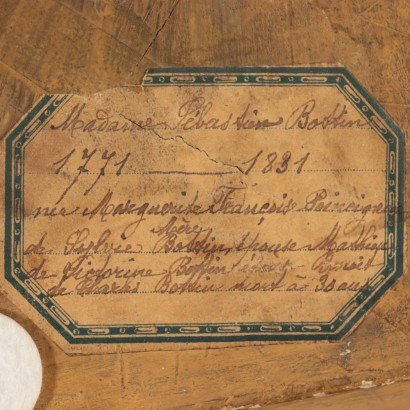 Madame Sébastien Bottin
1771 ——— 1831
née Marguerite François
Mère
de Sylvie Bottin, épouse Mathieu
de Victorine Bottin
de Charles Bottin mort à 30 ans